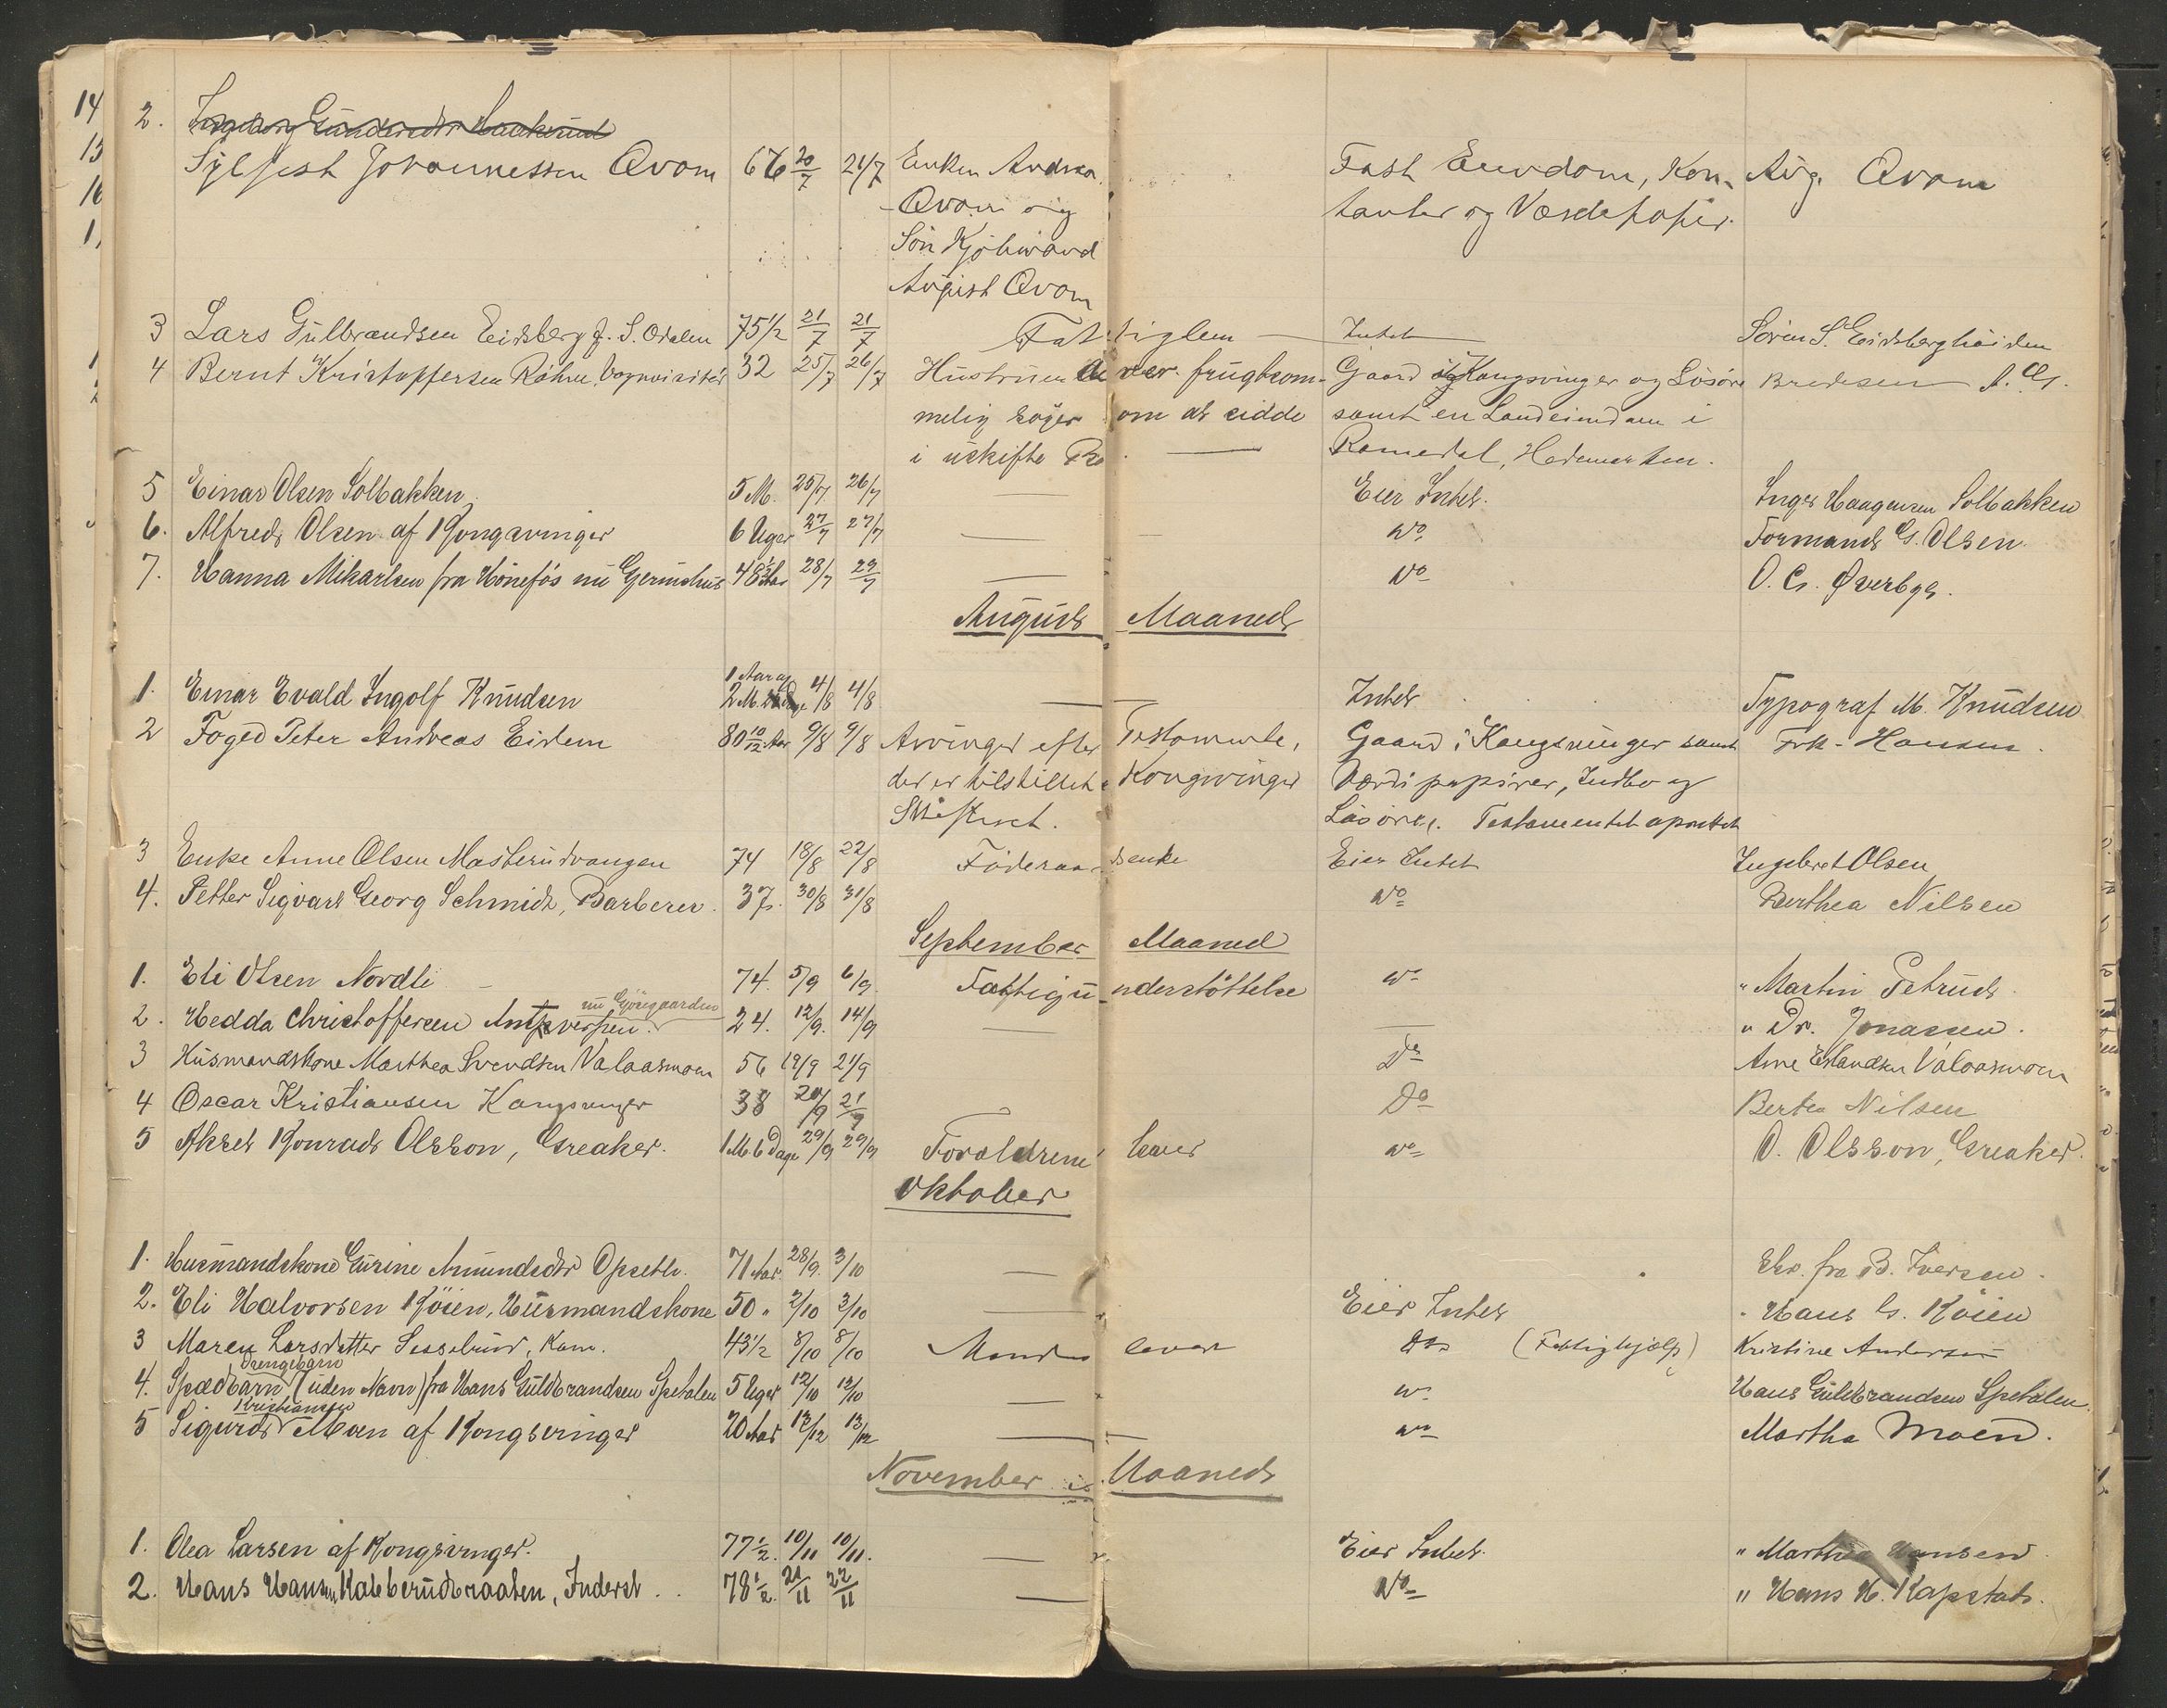 2. Ingeborg Gundersdtr
Sylfest Johannessen Qvom 66 20/7 21/7 Enken Andrea Fast Eiendom, Kon- Aug. Qvom
Qvom og tanter og Værdipapir.
Søn Kjøbmand
August Qvom
3 Lars Gulbrandsen Eidsberg f. S. Odalen 75 1/2 21/7 21/7 Fattiglem Intet Søren S. Eidsberghøiden
4 Bernt Kristoffersen Røhne, Vognvisitør 32 25/7 26/7 Hustruen er frugtsom- Gaard i Kongsvinger og Løsøre Bredesen
melig søger om at sidde samt en Landeiendom i
i uskifte Bo. Romedal, Hedemarken.
5 Einar Olsen Solbakken 5 M. 25/7. 26/7 Eier Intet. Inger Haagensen Solbakken
6. Alfred Olsen af Kongsvinger 6 Uger 27/7 27/7 Do Formand G. Olsen.
7. Hanna Mikarlsen fra Hønefos nu Gjermshus 48 Aar 28/7 29/7 Do O. Cs. Øverbye.
August Maaned
1. Einar Evald Ingolf Knudsen 1 Aar og 2 M. 4/8 4/8 Intet Typograf M. Knudsen
2 Foged Peter Andreas Eidem 80 10/12 Aar 9/8 9/8 Arvinger efter Testamente, Gaard i Kongsvinger samt Frk. Hansen.
der er tilstillet Kongsvinger Værdipapirer, Indbo og
Skifteret. Løsøre. Testamentet oprettet
3 Enke Anne Olsen Masterudvangen 74 18/8 22/8 Føderaadsenke Eier Intet Ingebret Olsen
4. Petter Sigvart Georg Schmidt, Barberer. 37. 30/8 31/8 Do Berthea Nilsen
September Maaned
1. Eli Olsen Nordli 74. 5/9 6/9. Fattigunderstøttelse Do " Martin Petrud
nu Gjøsegaarden
2. Hedda Christoffersen Antverpen. 24. 12/9. 14/9 " Dr. Jonassen.
3 Husmandskone Marthea Svendsen Valaasmoen 56 19/9 21/9 Do Arne Erlandsen Valaasmoen
4 Oscar Kristiansen Kongsvinger 38 20/9 21/9 Do Bertea Nilsen
5 Aksel Konrad Olsson, Greaker. 1 M 6 Dage 29/9 29/9 Forældrene lever Do O. Olsson, Greaker.
Oktober
1. Husmandskone Gurine Amundsdtr Opseth. 71 Aar. 28/9. 3/10 Skr. fra B. Iversen.
2. Eli Halvorsen Køien, Husmandskone 50 " 2/10 3/10 Eier Intet " Hans G. Køien
3 Maren Larsdatter Sesselrud, Kone. 43 1/2 8/10 8/10 Manden lever Do (Fattighjælp) Kristine Andersen
Drengebarn
4. Spædbarn (uden Navn) fra Hans Guldbrandsen Spetalen 5 Uger 12/10 12/10 Do Hans Guldbrandsen Spetalen.
Kristiansen
5 Sigurd Moen af Kongsvinger 20 Aar 13/12 13/12 Do Martha Moen.
November Maaned
1. Olea Larsen af Kongsvinger. 77 1/2. 10/11 10/11. Eier Intet. " Marthea Hansen.
2. Hans Hansen Kabberudbraaten, Inderst . . 78 1/2. 21/11 22/11 Do " Hans H. Kapstad.